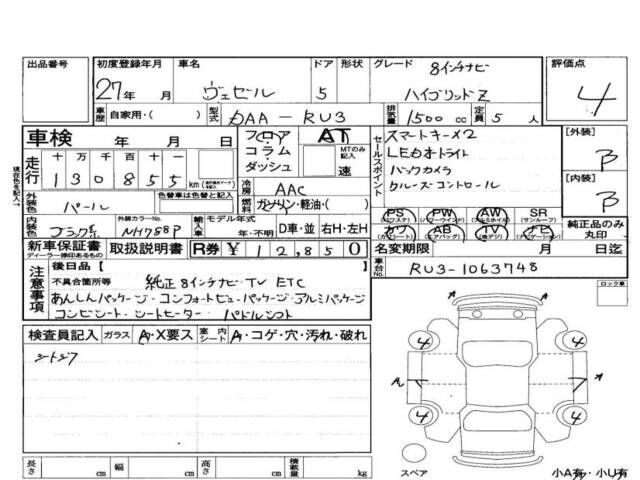 出品番号 初度登録年月 車名 ドア 形状 グレード 8インチナビ 評価点
27年 月 ヴェゼル 5 ハイブリッドZ 4
車歴 自家用・( ) 型式 DAA-RU3 排気量 1500cc 定員 5人
車検 年 月 日 フロア コラム ダッシュ AT MTのみ記入 速
セールスポイント スマートキー×2 [外装] B
LEDオートライト
バックカメラ [内装] B
クルーズコントロール
走行 十 万 千 百 十 一
130855 km
現状色を記入→
外装色 パール 色替車は色替と記入
冷房 AAC
燃料 ガソリン・軽油・( )
内装色 ブラック系 外装カラーNo. NH788P 輸入車 モデル年式 年・不明 D車・並 右H・左H
PS (パワステ) PW (パワーウインド) AW (アルミホイル) SR (サンルーフ)
カワ (カワシート) AB (エアバッグ) TV (地デジ) ナビ (ナビゲーション) 純正品のみ丸印
新車保証書 ディーラー捺印あるもの 取扱説明書 R券 ¥12,850
名変期限 月 日迄
車台No. RU3-1063748
注意事項 後日品【
不具合箇所等 純正8インチナビ・TV ETC
あんしんパッケージ・コンフォートビューパッケージ・アルミパッケージ
コンビシート・シートヒーター・パドルシフト
ロック車
検査員記入 ガラス A・X要ス 室内シート A・コゲ・穴・汚れ・破れ
4 4
A A
4 4
スペア
小A有・小U有
長さ cm 幅 cm 高さ cm 積載量 kg